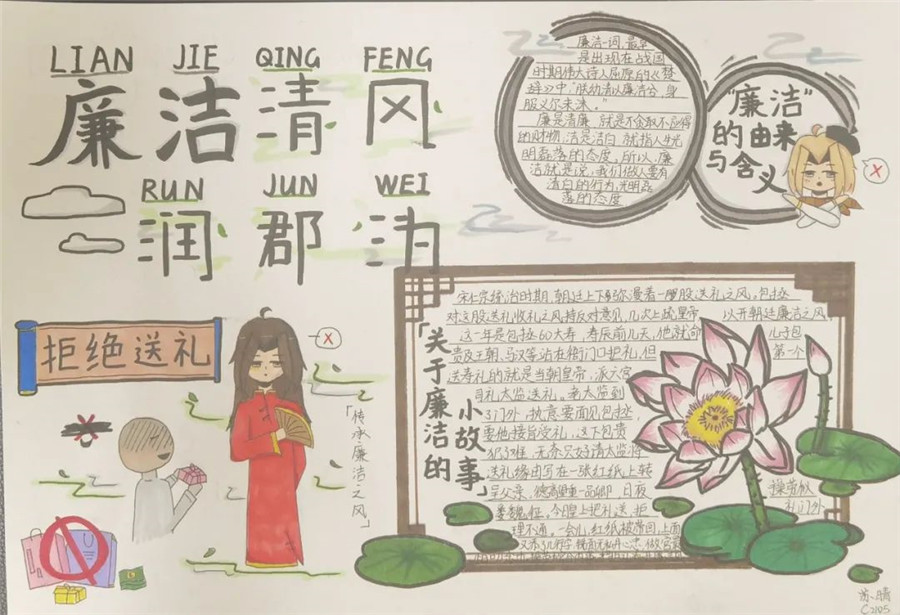 LIAN JIE QING FENG
廉洁清风
RUN JUN WEI
润郡沩
廉洁一词,最早
是出现在战国
时期伟大诗人屈原的《楚
辞》中,"朕幼清以廉洁兮,身
服义尔未沬。"
廉是清廉,就是不贪取不应得
的财物,洁是洁白,就指人生光
明磊落的态度。所以,廉
洁就是说,我们做人要有
清白的行为,光明磊
落的态度
"廉洁"
的由来
与含义
x
拒绝送礼
x
「传承廉洁之风」
「关于廉洁的
小故事」
宋仁宗统治时期,朝廷上下弥漫着一股股送礼之风。包拯
对这股送礼收礼之风持反对意见,几次上疏皇帝
以开朝廷廉洁之风,
这一年是包拯60大寿,寿辰前几天,他就命
儿子包
贵及王朝、马汉等站在衙门口拒礼,但
第一个
送寿礼的就是当朝皇帝,派六宫
司礼太监送礼。老太监到
了门外,执意要面见包拯,
要他接旨受礼。这下包贵
犯了难,无奈只好请太监将
送礼缘由写在一张红纸上转
呈父亲,德高望重一品卿
日夜
操劳似
魏征,今日上把礼送,拒
礼门外
理不通。一会儿,红纸被带回,上面